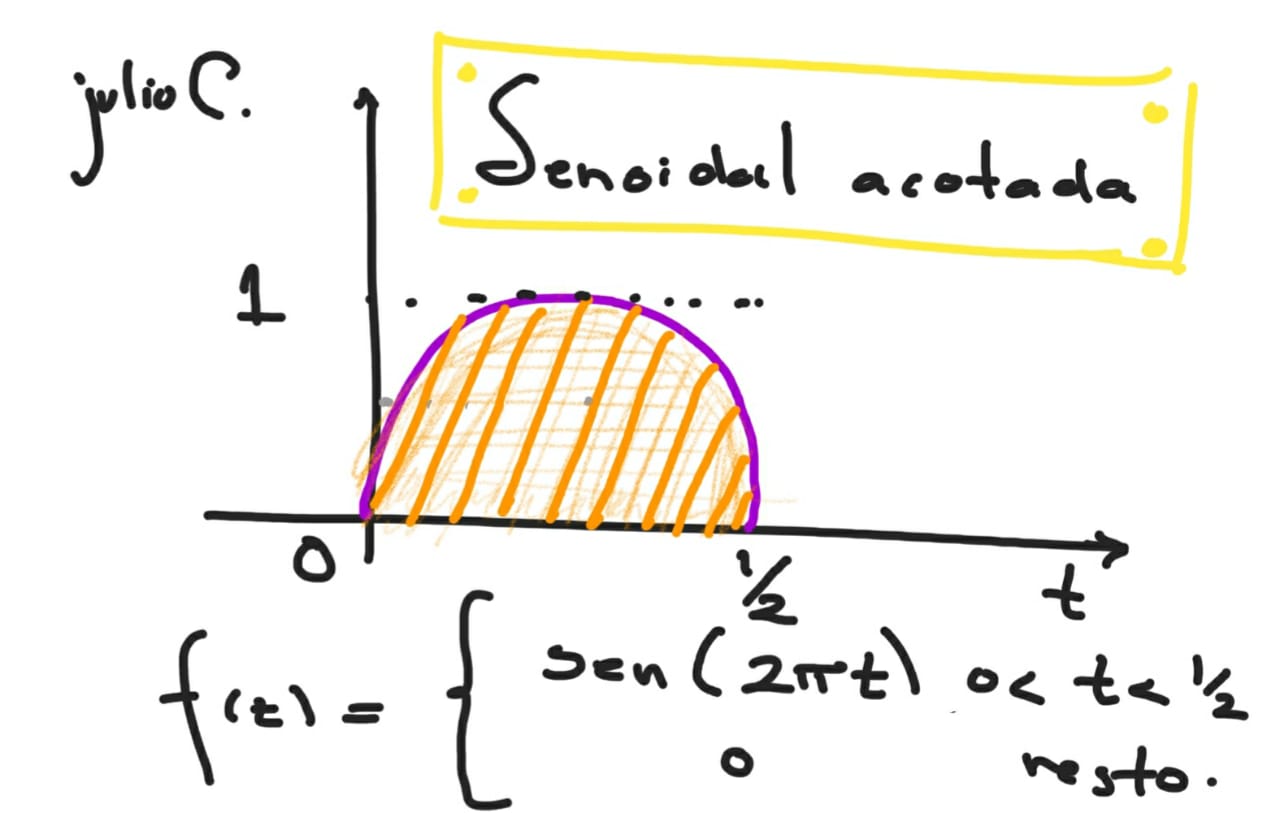 julio C.
Senoidal acotada
1
0
1/2
t
f(t) = { sen(2πt) 0< t< 1/2
0 resto.